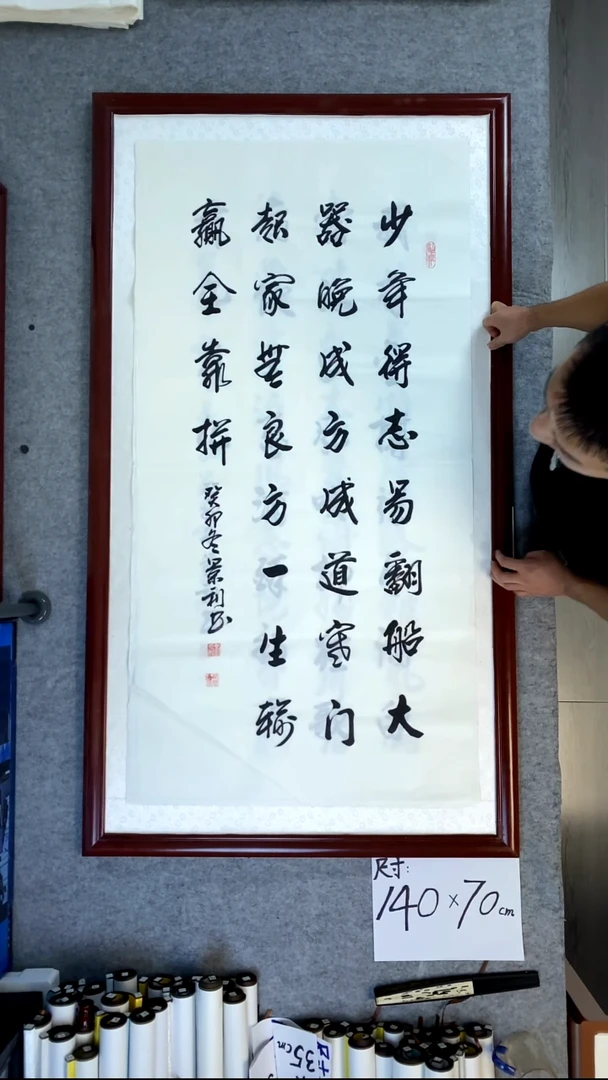 少年得志易翻船大
器晚成方成道寒门
起家無良方一生输
赢全靠拼
癸卯冬景利书
尺寸:
140×70cm
35cm